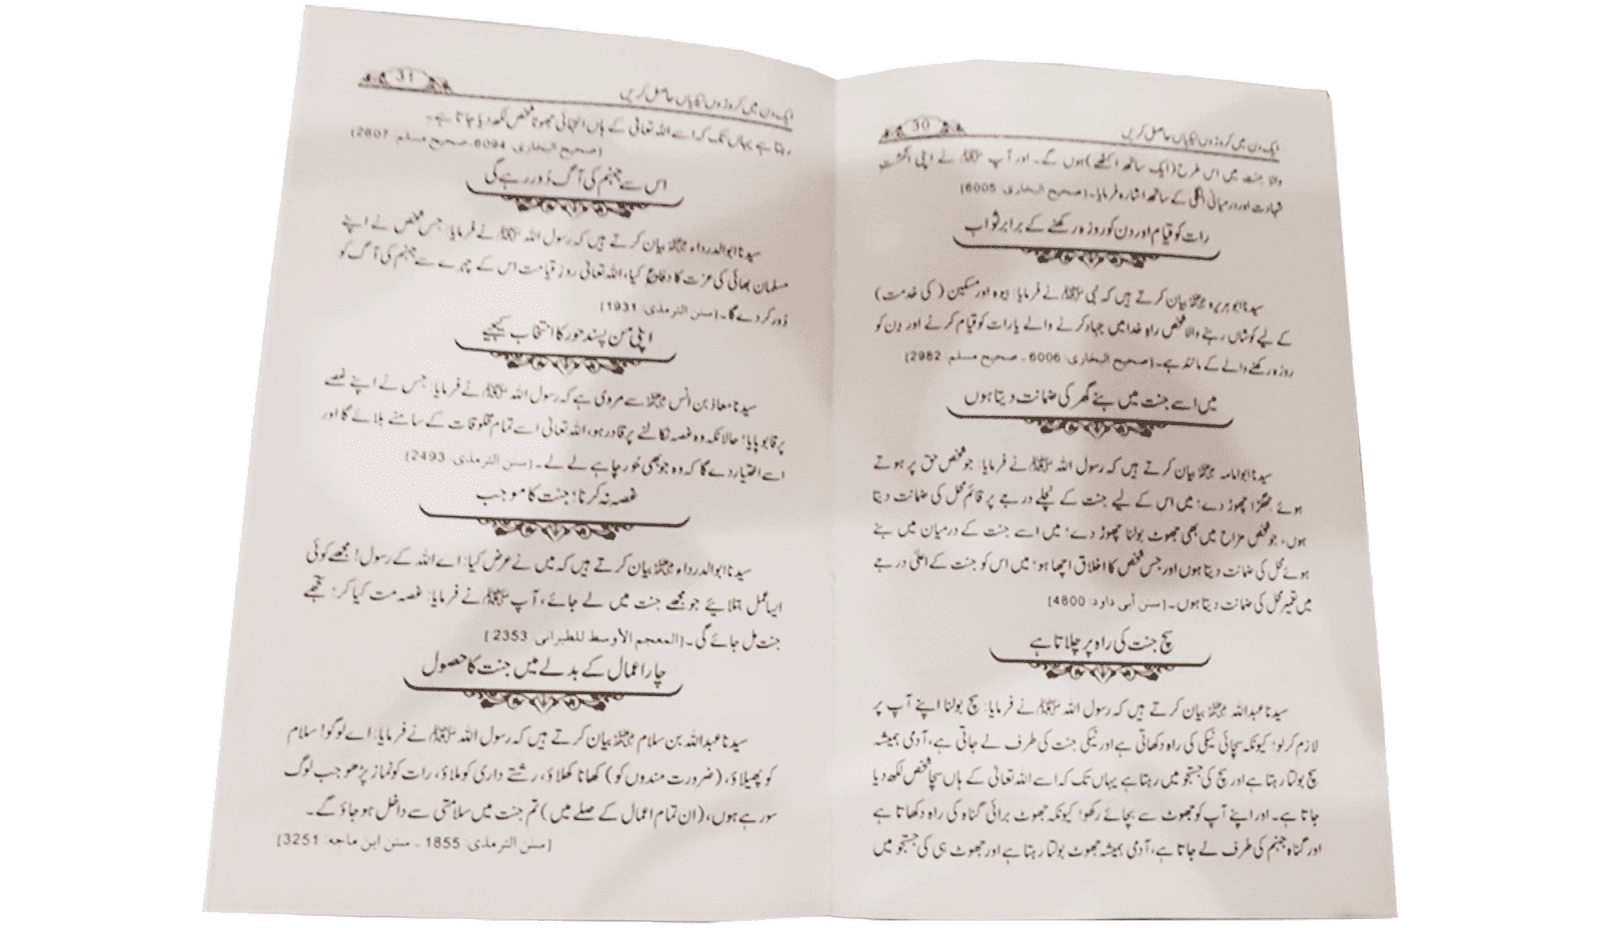 ایک دن میں کروڑوں نیکیاں حاصل کریں
30
والا جنت میں اس طرح (ایک ساتھ اکٹھے) ہوں گے۔ اور آپ ﷺ نے اپنی انگشت
شہادت اور درمیانی انگلی کے ساتھ اشارہ فرمایا۔ [صحیح البخاری: 6005]
رات کو قیام اور دن کو روزہ رکھنے کے برابر ثواب
سیدنا ابو ہریرہ ؓ بیان کرتے ہیں کہ نبی ﷺ نے فرمایا: بیوہ اور مسکین (کی خدمت)
کے لیے کوشاں رہنے والا شخص راہ خدا میں جہاد کرنے والے یا رات کو قیام کرنے اور دن کو
روزہ رکھنے والے کے مانند ہے۔ [صحیح البخاری: 6006 ۔ صحیح مسلم: 2982]
میں اسے جنت میں بنے گھر کی ضمانت دیتا ہوں
سیدنا ابوامامہ ؓ بیان کرتے ہیں کہ رسول اللہ ﷺ نے فرمایا: جو شخص حق پر ہوتے
ہوئے جھگڑا چھوڑ دے؛ میں اس کے لیے جنت کے نچلے درجے پر قائم محل کی ضمانت دیتا
ہوں، جو شخص مزاح میں بھی جھوٹ بولنا چھوڑ دے؛ میں اسے جنت کے درمیان میں بنے
ہوئے محل کی ضمانت دیتا ہوں اور جس شخص کا اخلاق اچھا ہو؛ میں اس کو جنت کے اعلیٰ درجے
میں تعمیر محل کی ضمانت دیتا ہوں۔ [سنن أبی داود: 4800]
سچ جنت کی راہ پر چلاتا ہے
سیدنا عبداللہ ؓ بیان کرتے ہیں کہ رسول اللہ ﷺ نے فرمایا: سچ بولنا اپنے آپ پر
لازم کر لو؛ کیونکہ سچائی نیکی کی راہ دکھاتی ہے اور نیکی جنت کی طرف لے جاتی ہے، آدمی ہمیشہ
سچ بولتا رہتا ہے اور سچ کی جستجو میں رہتا ہے یہاں تک کہ اسے اللہ تعالیٰ کے ہاں سچا شخص لکھ دیا
جاتا ہے۔ اور اپنے آپ کو جھوٹ سے بچائے رکھو؛ کیونکہ جھوٹ برائی گناہ کی راہ دکھاتا ہے
اور گناہ جہنم کی طرف لے جاتا ہے، آدمی ہمیشہ جھوٹ بولتا رہتا ہے اور جھوٹ ہی کی جستجو میں
ایک دن میں کروڑوں نیکیاں حاصل کریں
31
رہتا ہے یہاں تک کہ اسے اللہ تعالیٰ کے ہاں انتہائی جھوٹا شخص لکھ دیا جاتا ہے۔
[صحیح البخاری: 6094۔ صحیح مسلم: 2607]
اس سے جہنم کی آگ دُور رہے گی
سیدنا ابوالدرداء ؓ بیان کرتے ہیں کہ رسول اللہ ﷺ نے فرمایا: جس شخص نے اپنے
مسلمان بھائی کی عزت کا دفاع کیا، اللہ تعالیٰ روزِ قیامت اس کے چہرے سے جہنم کی آگ کو
دُور کر دے گا۔ [سنن الترمذی: 1931]
اپنی من پسند حور کا انتخاب کیجیے
سیدنا معاذ بن انس ؓ سے مروی ہے کہ رسول اللہ ﷺ نے فرمایا: جس نے اپنے غصے
پر قابو پایا؛ حالانکہ وہ غصہ نکالنے پر قادر ہو، اللہ تعالیٰ اسے تمام مخلوقات کے سامنے بلائے گا اور
اسے اختیار دے گا کہ وہ جو بھی حور چاہے لے لے۔ [سنن الترمذی: 2493]
غصہ نہ کرنا؛ جنت کا موجب
سیدنا ابوالدرداء ؓ بیان کرتے ہیں کہ میں نے عرض کیا: اے اللہ کے رسول! مجھے کوئی
ایسا عمل بتلائیے جو مجھے جنت میں لے جائے، آپ ﷺ نے فرمایا: غصہ مت کیا کر؛ تجھے
جنت مل جائے گی۔ [المعجم الأوسط للطبرانی: 2353]
چار اعمال کے بدلے میں جنت کا حصول
سیدنا عبداللہ بن سلام ؓ بیان کرتے ہیں کہ رسول اللہ ﷺ نے فرمایا: اے لوگو! سلام
کو پھیلاؤ، (ضرورت مندوں کو) کھانا کھلاؤ، رشتے داری کو ملاؤ، رات کو نماز پڑھو جب لوگ
سو رہے ہوں، (ان تمام اعمال کے صلے میں) تم جنت میں سلامتی سے داخل ہو جاؤ گے۔
[سنن الترمذی: 1855 ۔ سنن ابن ماجہ: 3251]